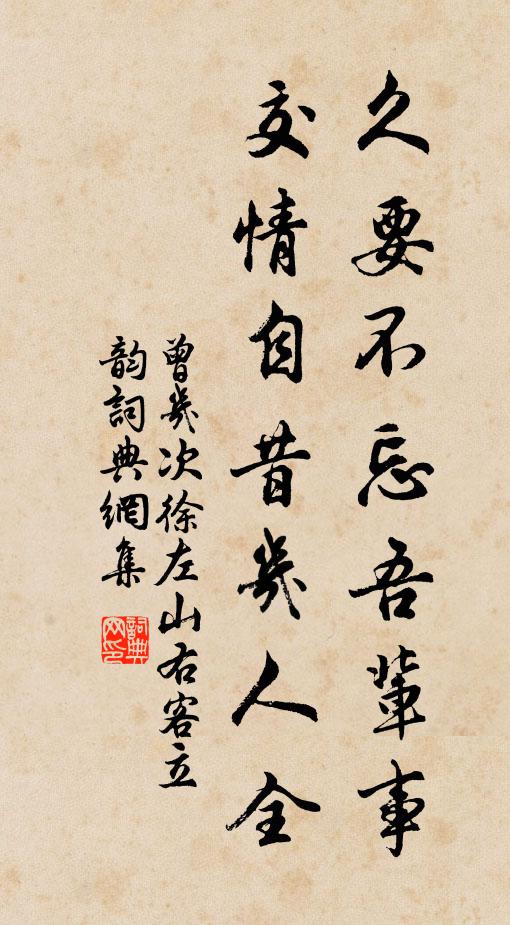 久要不忘吾輩事
交情自昔幾人全
曾幾次徐左山右客立
韵詞典網集
詞典网印